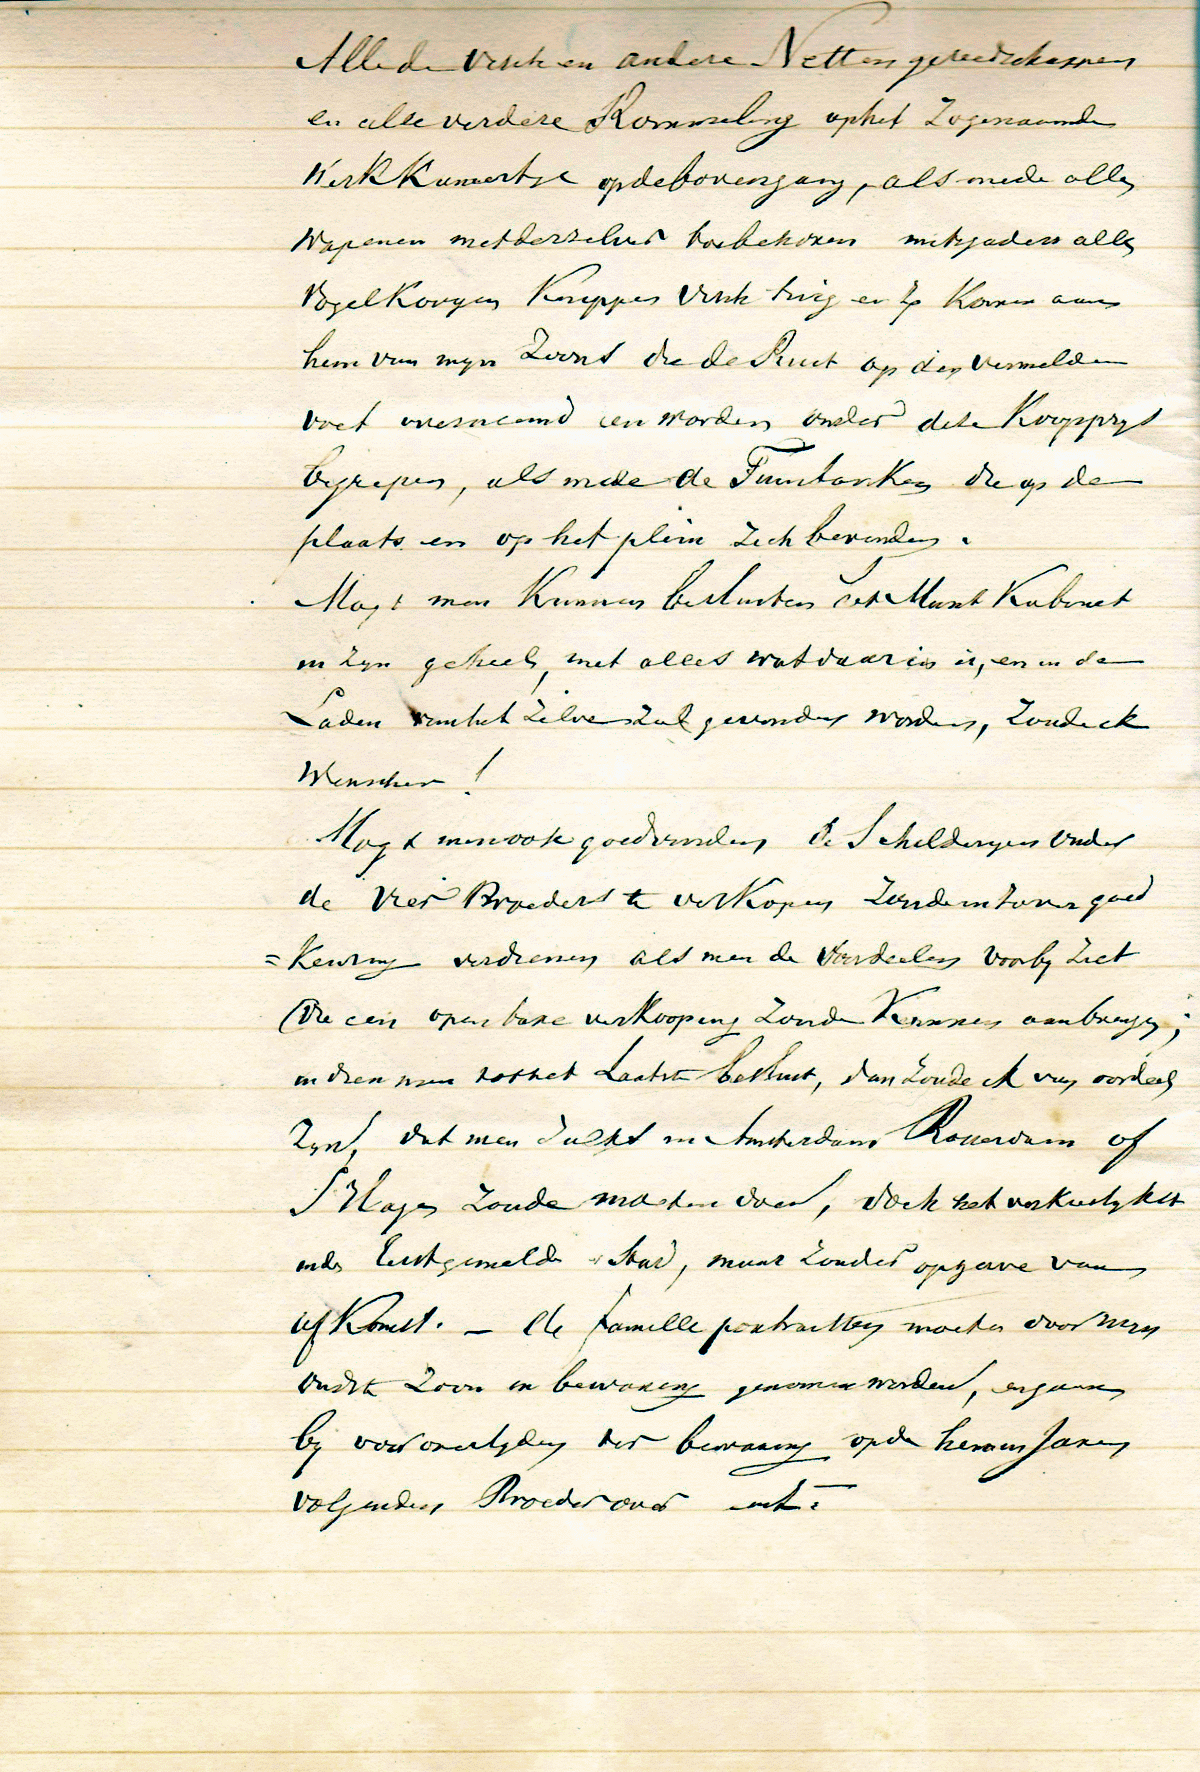 Alle de Visch en andere Netten gereedschappen
en alle verdere Rommeling op het Zogenaamde
Werk Kamertje op de bovengang, als mede alle
Wapenen met derzelver toebehoren mitsgaders alle
Vogel Korven Knippen Visch tuig en Zo Komen aan
hem van mijn Zoons die de Buit op den vermelden
voet overneemd en worden onder dese Koopprys
begrepen, als mede de Tuinbanken die op de
plaats en op het plein Zich bevinden.
Mogt men Kunnen besluiten het Munt Kabinet
in Zyn geheel, met alles wat daar in is, en in de
Laden van het Zelve Zal gevonden worden, Zoude ik
Wenschen!
Mogt men ook goedvinden de Schilderyen onder
de vier Broeders te verKopen Zonder goed
=Keuring verdienen als men de Voordeelen voorby Ziet
die een openbare verkooping Zoude Kunnen aanbrengen;
indien men tot het Laatste besluit, dan Zoude ik van oordeel
Zyn, dat men Zulks in Amsterdam Rotterdam of
S'Hage Zoude moeten doen, doch het verkieslykst
in de Eerstgemelde Stad, maar Zonder opgave van
afKomst. — De familie portraitten moeten door myn
oudste Zoon in bewaring genomen worden, en gaan
by vooroverlyden ter bewaring op de hem in Jaren
volgenden Broeder over